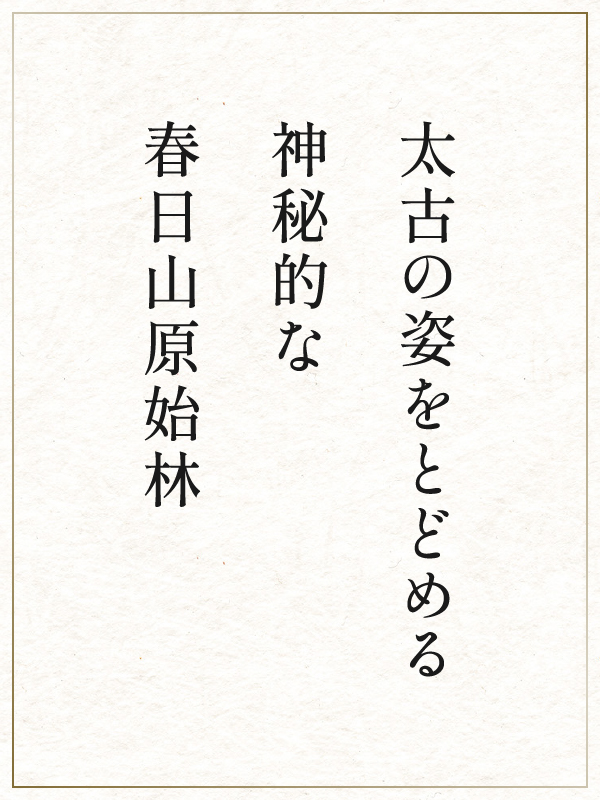 太古の姿をとどめる
神秘的な
春日山原始林